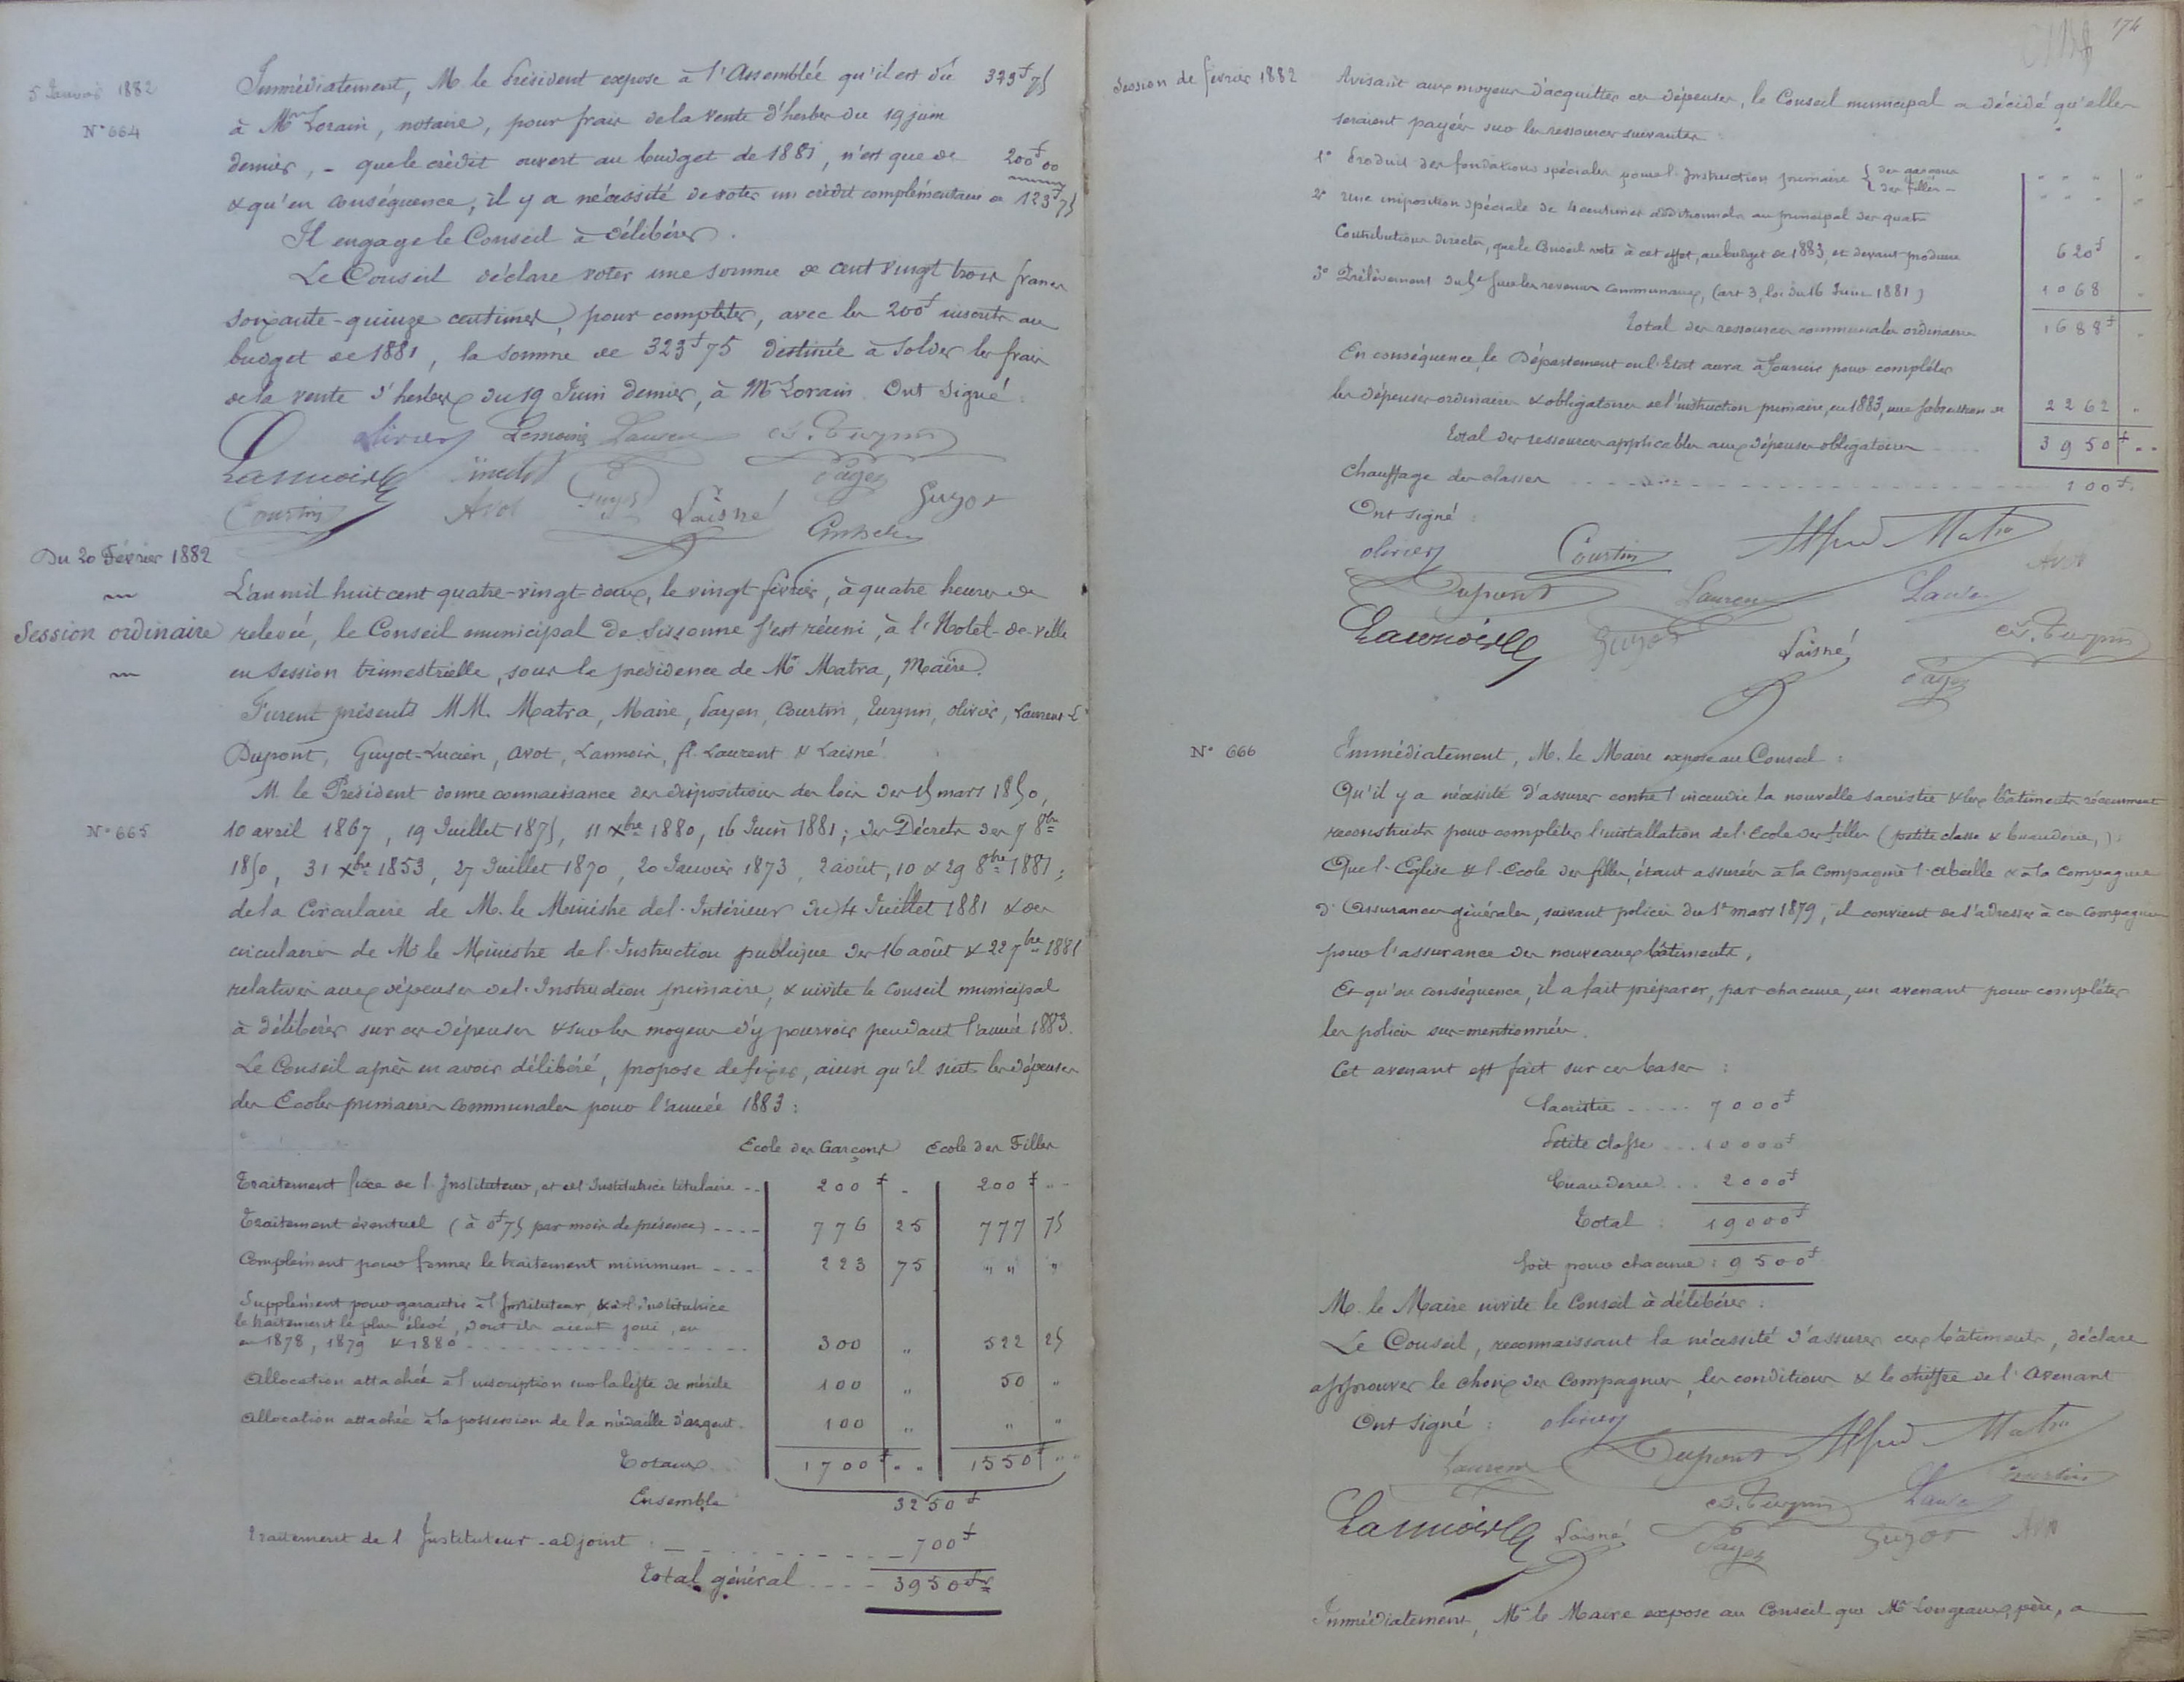 5 Janvier 1882
N° 664
Immédiatement, M. le Président expose à l'Assemblée qu'il est dû 323f 75
à Me Lorain, notaire, pour frais de la vente d'herbes du 19 juin
dernier, - que le crédit ouvert au budget de 1881, n'est que de 200f 00
& qu'en conséquence, il y a nécessité de voter un crédit complémentaire de 123f 75
Il engage le Conseil à délibérer.
Le Conseil déclare voter une somme de cent vingt trois francs
soixante-quinze centimes, pour compléter, avec les 200f inscrits au
budget de 1881, la somme de 323f 75 destinée à solder les frais
de la vente d'herbes du 19 Juin dernier, à Me Lorain. Ont signé :
Olivier Lemoine Laurent Ed. Turpin
Lannois Payen
Courtin Avot Guyot Laisné Guyot
Du 20 Février 1882
Session ordinaire
L'an mil huit cent quatre-vingt-deux, le vingt février, à quatre heures de
relevée, le Conseil municipal de Sissonne s'est réuni, à l'Hotel-de-ville
en session trimestrielle, sous la présidence de Mr Matra, Maire.
Furent présents MM. Matra, Maire, Payen, Courtin, Turpin, Olivier, Laurent L
Dupont, Guyot-Lucien, Avot, Lannois, fl. Laurent & Laisné.
N° 665
M. le Président donne connaissance des dispositions des lois des 15 mars 1850,
10 avril 1867, 19 Juillet 1875, 11 xbre 1880, 16 Juin 1881; des Décrets des 7 8bre
1850, 31 xbre 1853, 27 Juillet 1870, 20 Janvier 1873, 2 août, 10 & 29 8bre 1881;
de la Circulaire de M. le Ministre de l'Intérieur du 4 Juillet 1881 & des
circulaires de Mr le Ministre de l'Instruction publique des 16 août & 22 7bre 1881
relatives aux dépenses de l'Instruction primaire, & invite le Conseil municipal
à délibérer sur ces dépenses & sur les moyens d'y pourvoir pendant l'année 1883.
Le Conseil après en avoir délibéré, propose de fixer, ainsi qu'il suit les dépenses
des Ecoles primaires communales pour l'année 1883 :
Ecole des Garçons Ecole des Filles
Traitement fixe de l'Instituteur, et de l'Institutrice titulaire -- 200f - 200f " -
Traitement éventuel (à 0f 75 par mois de présence) ---- 776 25 777 75
Complément pour former le traitement minimum --- 223 75 " " "
Supplément pour garantir à l'Instituteur, & à l'Institutrice
le traitement le plus élevé, dont ils aient joui, en
en 1878, 1879 & 1880 300 " 522 25
Allocation attachée à l'inscription sur la liste de mérite 100 " 50 "
Allocation attachée à la possession de la médaille d'argent. 100 " " "
Totaux 1700f " " 1550f " "
Ensemble 3250f
Traitement de l'Instituteur-adjoint 700f
Total général ---- 3950fr
174
Session de février 1882
Avisant aux moyens d'acquitter ces dépenses, le Conseil municipal a décidé qu'elles
seraient payées sur les ressources suivantes :
1° Produit des fondations spéciales pour l'Instruction primaire { des garçons " " " "
{ des filles - " " " "
2° Une imposition spéciale de 4 centimes additionnels au principal des quatre
Contributions directes, que le Conseil vote à cet effet, au budget de 1883, et devant produire 620f "
3° Prélèvement du 5e sur les revenus communaux, (art 3, loi du 16 Juin 1881) 1068 "
Total des ressources communales ordinaires 1688f "
En conséquence, le Département ou l'Etat aura à fournir pour compléter
les dépenses ordinaires & obligatoires de l'instruction primaire, en 1883, une subvention de 2262 "
Total des ressources applicables aux dépenses obligatoires 3950f " "
Chauffage des classes 100f
Ont signé :
Olivier Courtin Alfred Matra
Dupont Laurent Laurent Avot
Lannois Guyot Laisné Ed. Turpin
Payen
N° 666
Immédiatement, M. le Maire expose au Conseil :
Qu'il y a nécessité d'assurer contre l'incendie la nouvelle sacristie & les bâtiments récemment
reconstruits pour compléter l'installation de l'Ecole des filles (petite classe & buanderie,);
Que l'Eglise & l'Ecole des filles, étant assurées à la Compagnie l'Abeille & à la Compagnie
d'Assurances générales, suivant polices du 1er mars 1879, il convient de s'adresser à ces Compagnies
pour l'assurance des nouveaux bâtiments,
Et qu'en conséquence, il a fait préparer, par chacune, un avenant pour compléter
les polices sus-mentionnées.
Cet avenant est fait sur ces bases :
Sacristie ..... 7000f
Petite classe ... 10000f
Buanderie ... 2000f
Total : 19000f
Soit pour chacune : 9500f
M. le Maire invite le Conseil à délibérer :
Le Conseil, reconnaissant la nécessité d'assurer ces bâtiments, déclare
approuver le choix des Compagnies, les conditions & le chiffre de l'Avenant
Ont signé : Olivier
Laurent Dupont Alfred Matra
Ed. Turpin Laurent Courtin
Lannois Laisné Payen Guyot Avot
Immédiatement, Mr le Maire expose au Conseil que Mr Longeaux, père, a